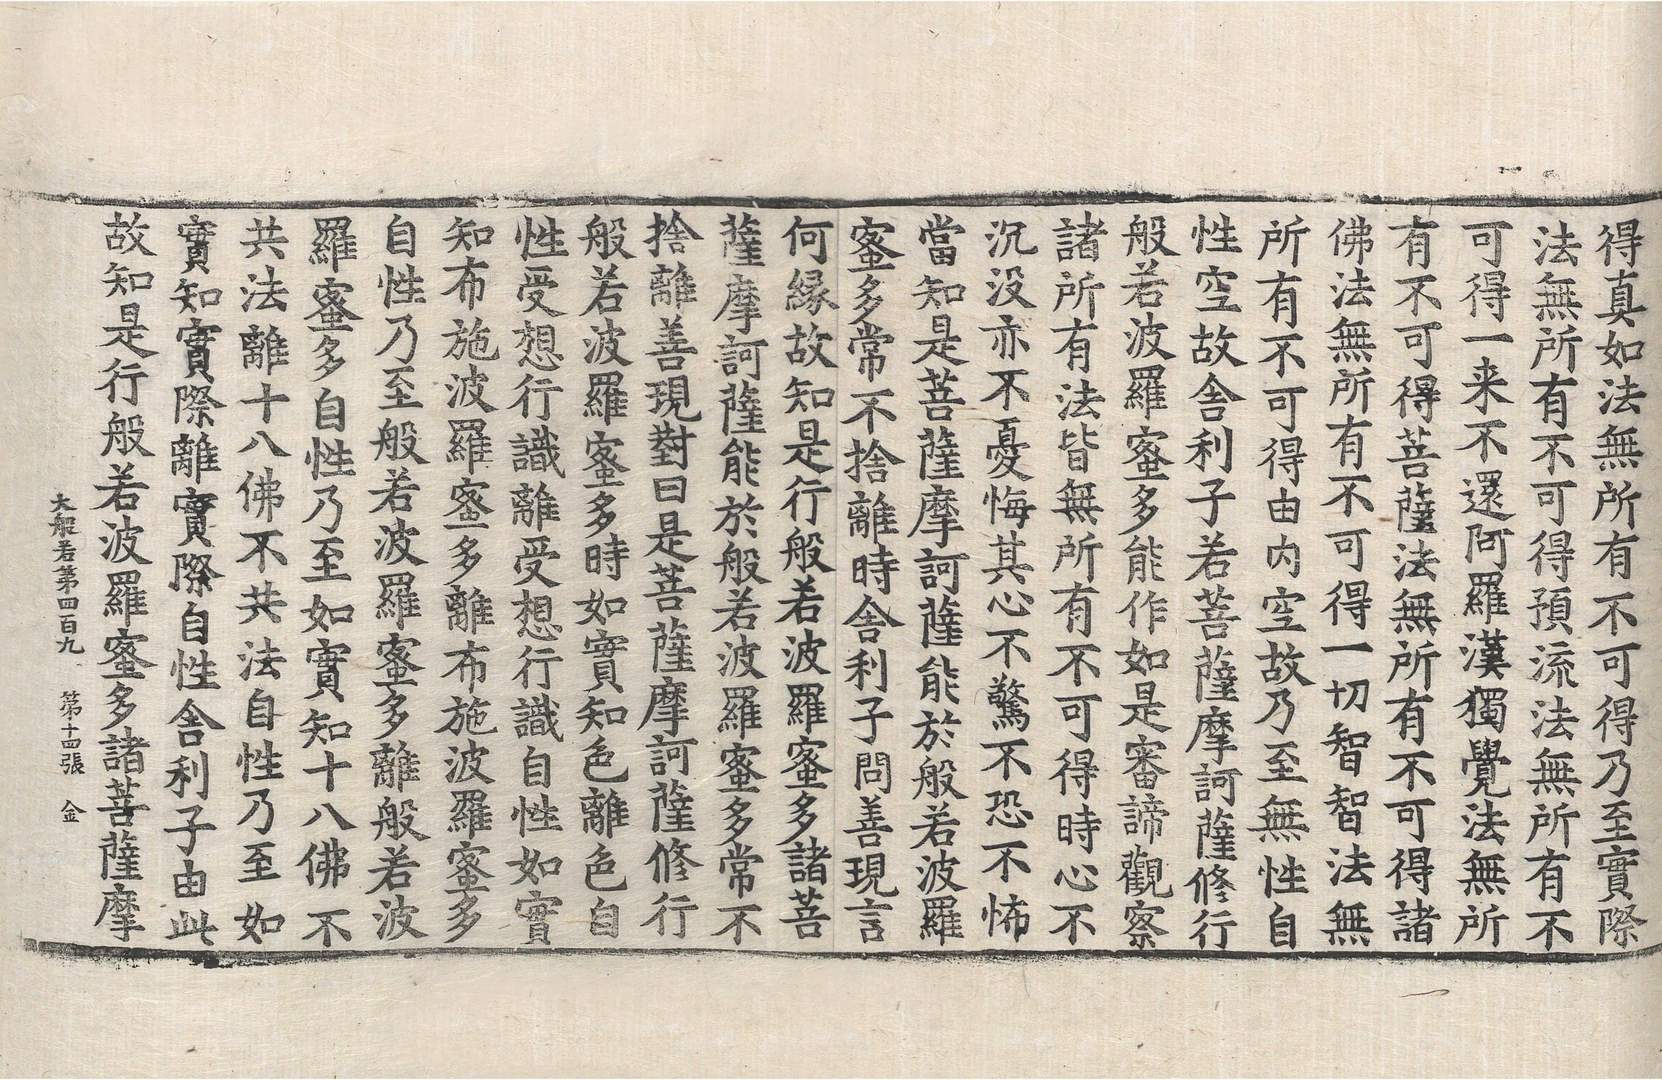 得真如法無所有不可得乃至實際
法無所有不可得預流法無所有不
可得一来不還阿羅漢獨覺法無所
有不可得菩薩法無所有不可得諸
佛法無所有不可得一切智智法無
所有不可得由内空故乃至無性自
性空故舎利子若菩薩摩訶薩修行
般若波羅蜜多能作如是審諦觀察
諸所有法皆無所有不可得時心不
沉没亦不憂悔其心不驚不恐不怖
當知是菩薩摩訶薩能於般若波羅
蜜多常不捨離時舎利子問善現言
何縁故知是行般若波羅蜜多諸菩
薩摩訶薩能於般若波羅蜜多常不
捨離善現對曰是菩薩摩訶薩修行
般若波羅蜜多時如實知色離色自
性受想行識離受想行識自性如實
知布施波羅蜜多離布施波羅蜜多
自性乃至般若波羅蜜多離般若波
羅蜜多自性乃至如實知十八佛不
共法離十八佛不共法自性乃至如
實知實際離實際自性舎利子由此
故知是行般若波羅蜜多諸菩薩摩
大般若第四百九 第十四張 金